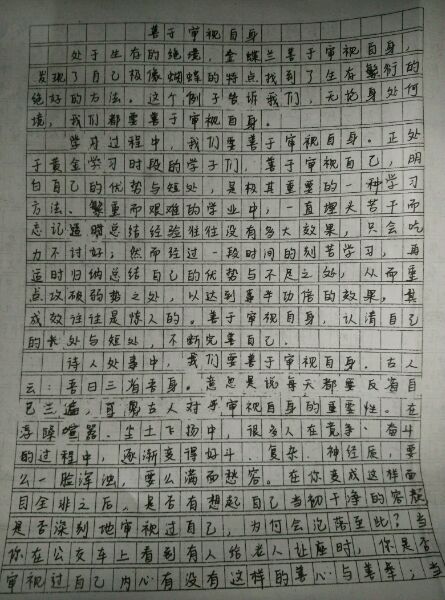 善于审视自身
处于生存的绝境，金蝶兰善于审视自身，
发现了自己极像蝴蝶的特点找到了生存繁衍的
绝好的方法。这个例子告诉我们，无论身处何
境，我们都要善于审视自身。
学习过程中，我们要善于审视自身。正处
于黄金学习时段的学子们，善于审视自己，明
白自己的优势与短处，是极其重要的一种学习
方法。繁重而艰难的学业中，一直埋头苦干而
忘记适时总结经验往往没有多大效果，只会吃
力不讨好；然而经过一段时间的刻苦学习，再
适时归纳总结自己的优势与不足之处，从而重
点攻破弱势之处，以达到事半功倍的效果，
成效往往是惊人的。善于审视自身，认清自己
的长处与短处，不断完善自己。
待人处事中，我们要善于审视自身。古人
云：吾日三省吾身。意思是说每天都要反省自
己三遍，可见古人对乎审视自身的重要性。在
浮躁喧嚣、尘土飞扬中，很多人在竞争、奋斗
的过程中，逐渐变得好斗、复杂、神经质，要
么一脸浑浊，要么满面愁容。在你变成这样面
目全非之后，是否有想起自己当初干净的容貌
是否深刻地审视过自己，为何会沦落至此？当
你在公交车上看到有人给老人让座时，你是否
审视过自己内心有没有这样的善心与善举；当